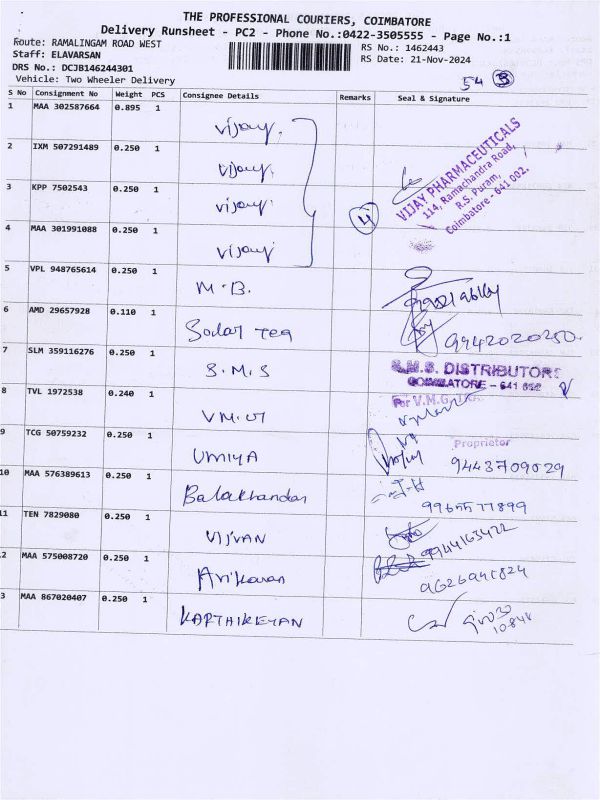 THE PROFESSIONAL COURIERS, COIMBATORE
Delivery Runsheet - PC2 - Phone No.:0422-3505555 - Page No.:1
Route: RAMALINGAM ROAD WEST RS No.: 1462443
Staff: ELAVARSAN RS Date: 21-Nov-2024
DRS No.: DCJB146244301
Vehicle: Two Wheeler Delivery 54 3
S No Consignment No Weight PCS Consignee Details Remarks Seal & Signature
1 MAA 302587664 0.895 1 vijay.
2 IXM 507291489 0.250 1 vijay.
3 KPP 7502543 0.250 1 vijay 4
4 MAA 301991088 0.250 1 vijay
VIJAY PHARMACEUTICALS
114, Ramachandra Road,
R.S. Puram,
Coimbatore - 641 002.
5 VPL 948765614 0.250 1 M.B.
6 AMD 29657928 0.110 1 Sodar Tea 9442020250.
7 SLM 359116276 0.250 1 S.M.S
S.M.S. DISTRIBUTORS
COIMBATORE - 641 002
8 TVL 1972538 0.240 1 V M. G
For V.M.G.
Proprietor
9 TCG 50759232 0.250 1 UMIYA 9443709029
10 MAA 576389613 0.250 1 Balakhandar 9965577899
11 TEN 7829080 0.250 1 VIJVAN 9944163472
2 MAA 575008720 0.250 1 Arikaran
3 MAA 867020407 0.250 1 KARTHIKEYAN